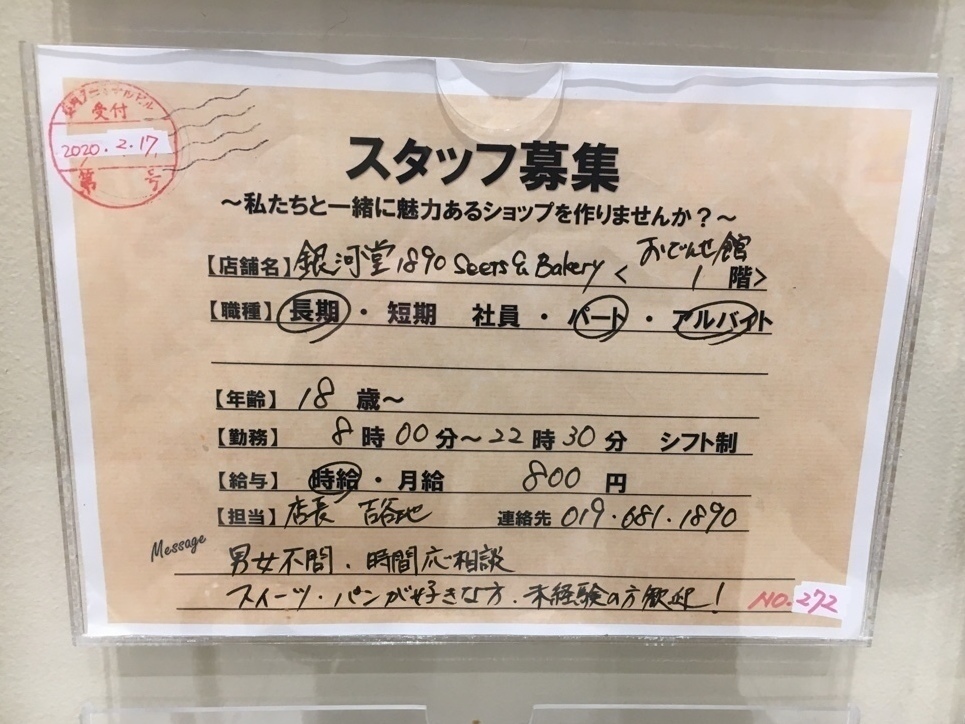 受付
2020.2.17
第 号
スタッフ募集
～私たちと一緒に魅力あるショップを作りませんか？～
【店舗名】銀河堂1890 Seers & Bakery <おでんせ館 1 階>
【職種】長期・短期 社員・パート・アルバイト
【年齢】18 歳～
【勤務】8 時 00 分～22 時 30 分 シフト制
【給与】時給・月給 800 円
【担当】店長 吉谷地 連絡先 019.681.1890
Message
男女不問、時間応相談
スイーツ・パンが好きな方、未経験の方歓迎！
NO.272